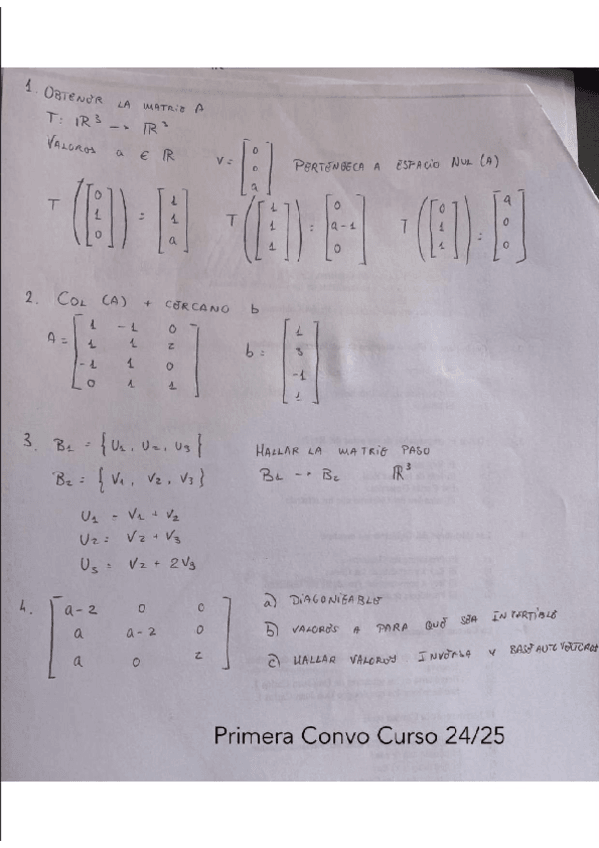 1. OBTENER LA MATRIZ A
T: ℝ³ --> ℝ³
VALORES a ∈ ℝ v = [0 0 a] PERTENEZCA A ESPACIO NUL (A)
T([0 1 0]) = [1 1 a] T([1 1 1]) = [0 a-1 0] T([0 1 1]) = [a 0 0]
2. COL (A) + CERCANO b
A = [1 -1 0
1 1 2
-1 1 0
0 1 1] b = [1 3 -1 1]
3. B1 = {U1, U2, U3} HALLAR LA MATRIZ PASO
B2 = {V1, V2, V3} B1 --> B2 ℝ³
U1 = V1 + V2
U2 = V2 + V3
U3 = V2 + 2V3
4. [a-2 0 0 a) DIAGONIZABLE
a a-2 0 b) VALORES A PARA QUE SEA INVERTIBLE
a 0 2] c) HALLAR VALORES, INVERSA Y BASE AUTOVECTORES
Primera Convo Curso 24/25